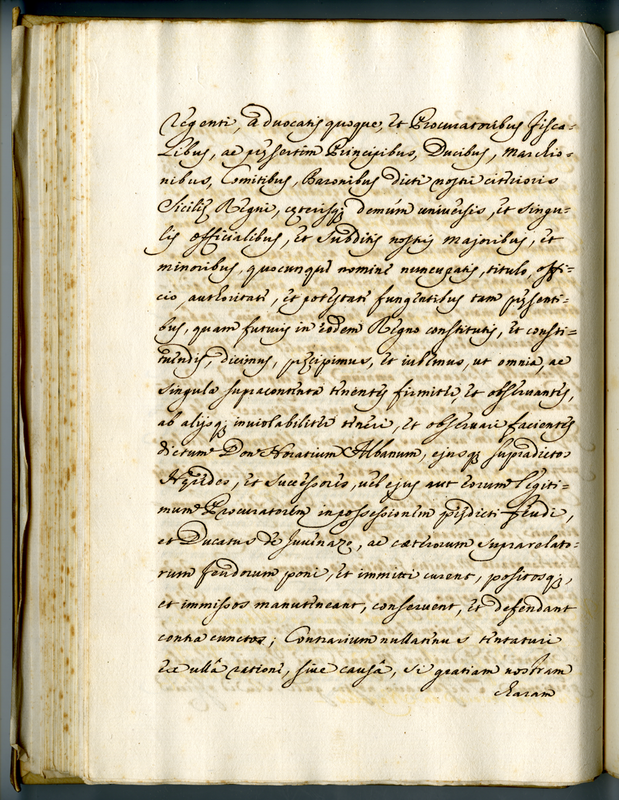 Regenti, Advocatis quoque, et Procuratoribus fisca-
libus, ac pręsertim Principibus, Ducibus, Marchio-
nibus, Comitibus, Baronibus dicti nostri citerioris
Sicilię Regni, cęterisq; demùm universis, et singu-
lis officialibus, et subditis nostris majoribus, et
minoribus, quocunque nomine nuncupatis, titulo, offi-
cio, authoritate, et potestate fungentibus tam pręsenti-
bus, quam futuris in eodem Regno constitutis, et consti-
tuendis, dicimus, pręcipimus, et iubemus, ut omnia, ac
singula supracontenta tenentes firmiter, et observantes,
ab alijsq; inviolabiliter teneri, et observari facientes
dictum Don Horatium Albanum, ejusq; supradictos
Hęredes, et Successores, vel ejus aut eorum legiti-
mum Procuratorem in possessionem prędicti feudi,
et Ducatus de Juvenazo, ac cæterorum suprarelato-
rum feudorum poni, et immiti curent, positosq;,
et immissos manuteneant, conservent, et defendant
contra cunctos; Contrarium nullatenus tentaturi
ex ullâ ratione, sive causâ, si gratiam nostram
charam